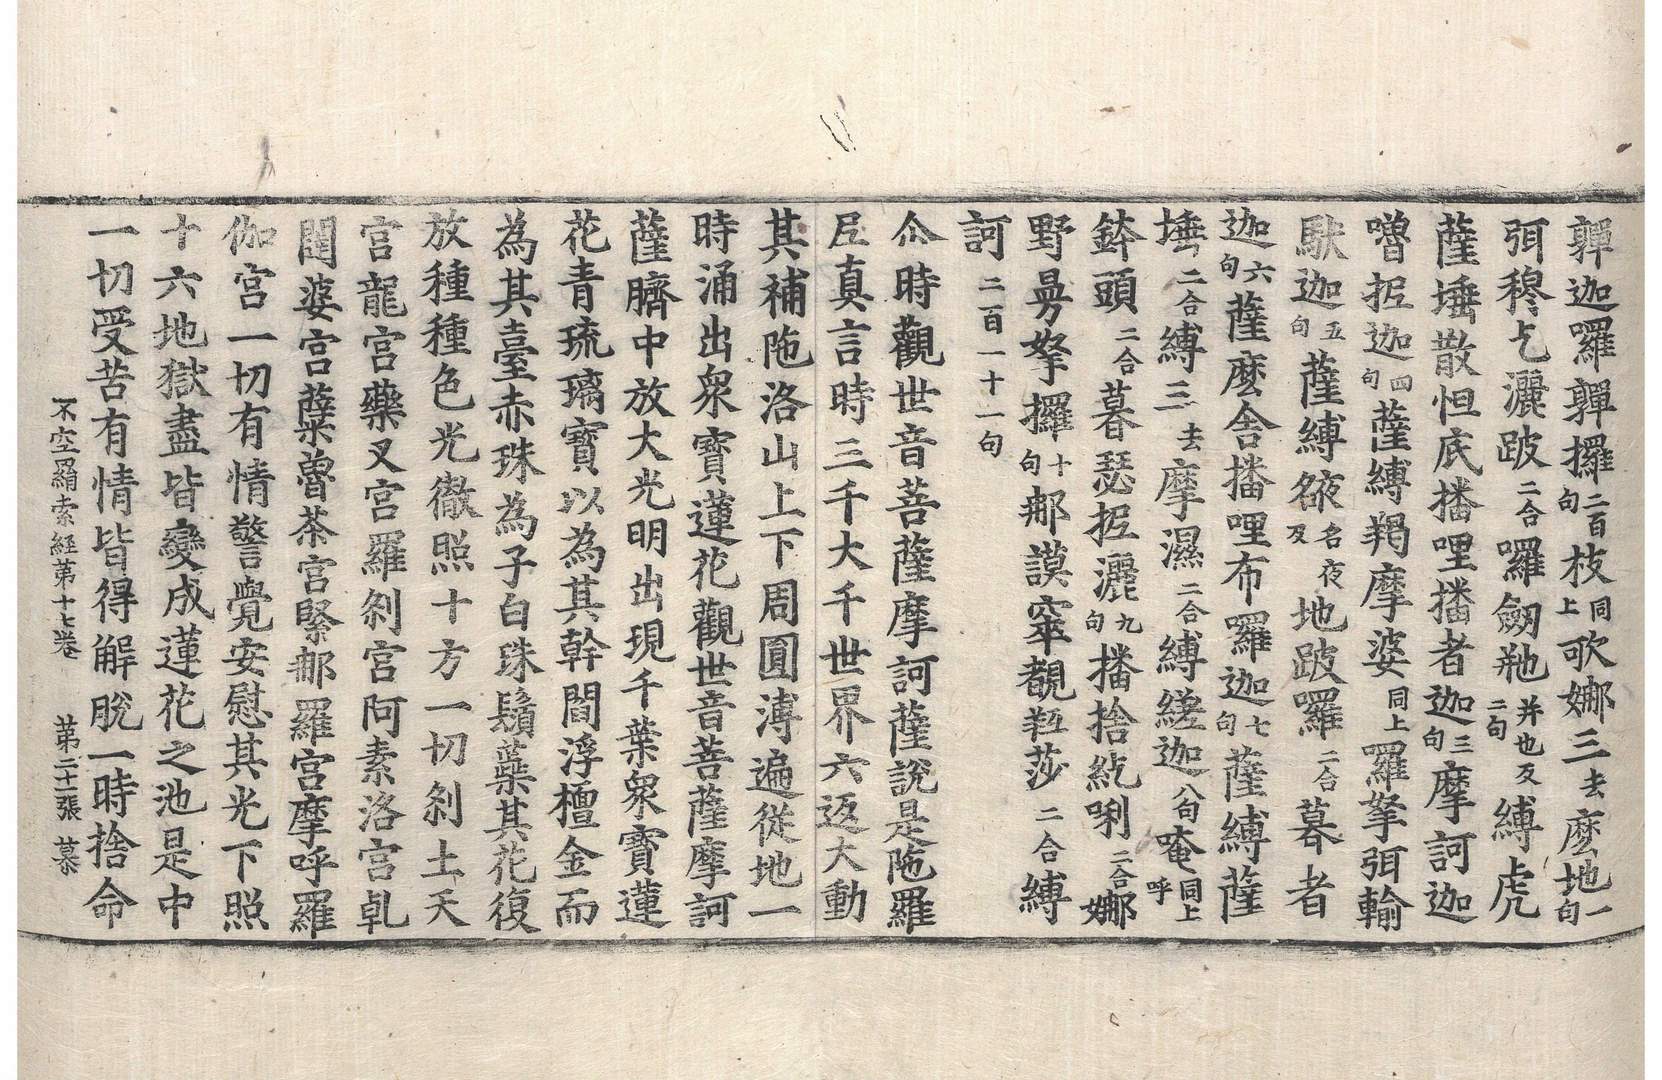 嚲迦囉嚲攞二百句枝同上歌娜三去麽地一句
弭穆乞灑跛二合囉劒𭉨并也反二句縛虎
薩埵散怛底播哩播者迦三句摩訶迦
嚕抳迦四句薩縛羯摩婆同上羅拏弭輸
馱迦五句薩縛㣼名夜反地跛囉二合暮者
迦六句薩麽舍播哩布囉迦七句薩縛薩
埵二合縛三去摩濕二合縛縒迦八句唵同上呼
鉢頭二合暮瑟抳灑九句播捨紇唎二合娜
野曼拏攞十句那謨窣覩羝莎二合縛
訶二百一十一句
尒時觀世音菩薩摩訶薩說是陁羅
尼真言時三千大千世界六返大動
其補陁洛山上下周圓溥遍從地一
時涌出衆寶蓮花觀世音菩薩摩訶
薩臍中放大光明出現千葉衆寶蓮
花青琉璃寶以為其幹閻浮檀金而
為其臺赤珠為子白珠鬚蘂其花復
放種種色光徹照十方一切刹土天
宮龍宮藥叉宮羅刹宮阿素洛宮乹
闥婆宮蘖魯茶宮緊那羅宮摩呼羅
伽宮一切有情警覺安慰其光下照
十六地獄盡皆變成蓮花之池是中
一切受苦有情皆得解脫一時捨命
不空羂索經第十七卷 第二十一張 慕